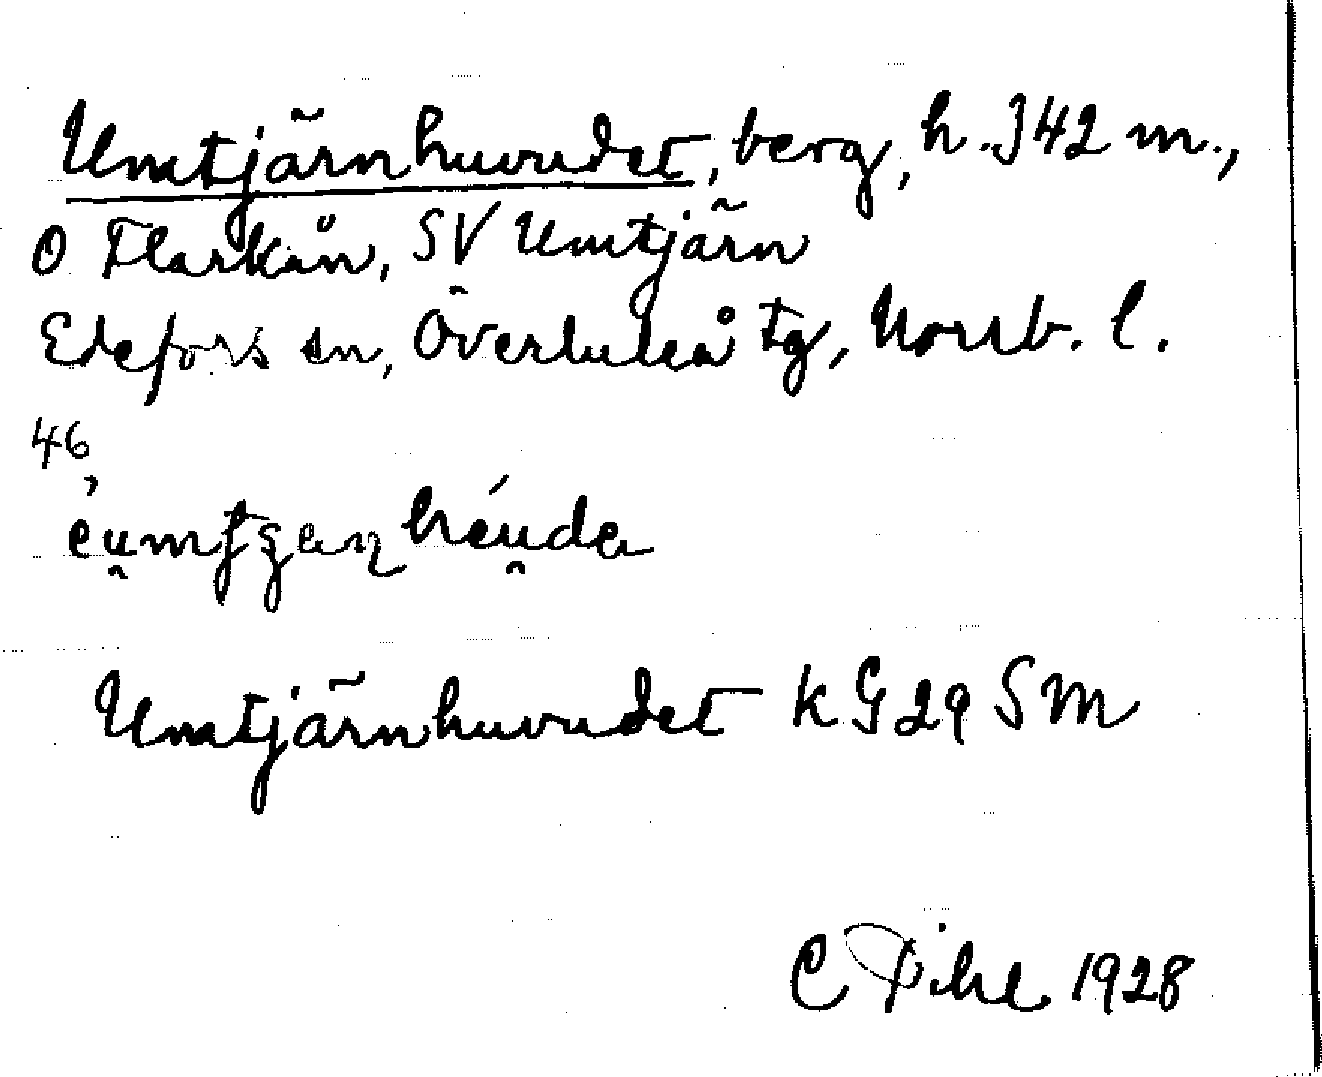 Umtjärnhuvudet, berg, h. 342 m.,
O Flarkån, SV Umtjärn
Edefors sn, Överluleå tg, Norrb. l.
46
Umtjärnhuvudet kG29 SM
C Pihl 1928